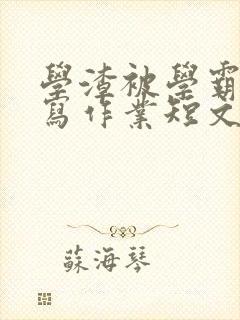 學渣被學霸
寫作業短文
蘇海琴